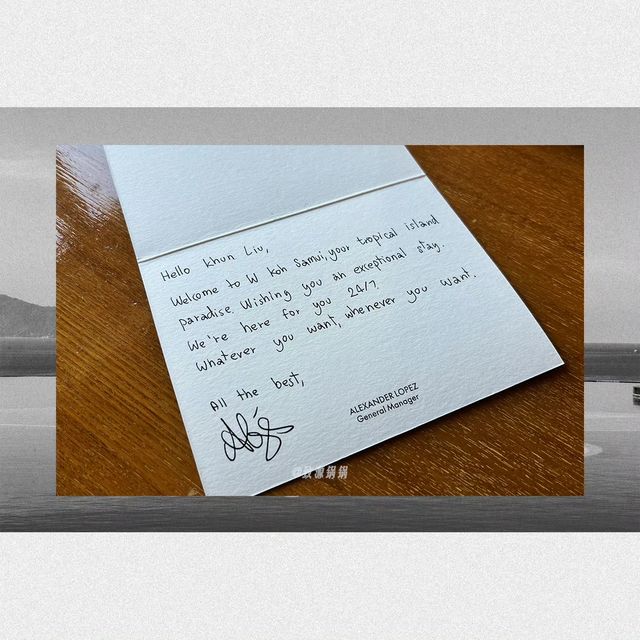 Hello Khun Liu,
Welcome to W Koh Samui, your tropical island
paradise. Wishing you an exceptional stay.
We're here for you 24/7.
Whatever you want, whenever you want.
All the best,
ALEXANDER LOPEZ
General Manager